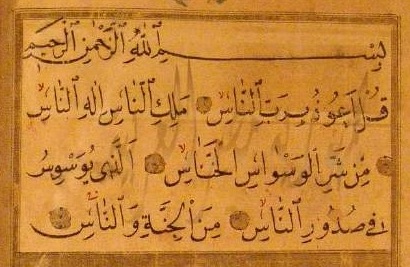 بِسْمِ اللهِ الرَّحْمٰنِ الرَّحِيمِ
قُلْ اَعُوذُ بِرَبِّ النَّاسِ مَلِكِ النَّاسِ اِلٰهِ النَّاسِ
مِنْ شَرِّ الْوَسْوَاسِ الْخَنَّاسِ اَلَّذِي يُوَسْوِسُ
فِي صُدُورِ النَّاسِ مِنَ الْجِنَّةِ وَالنَّاسِ